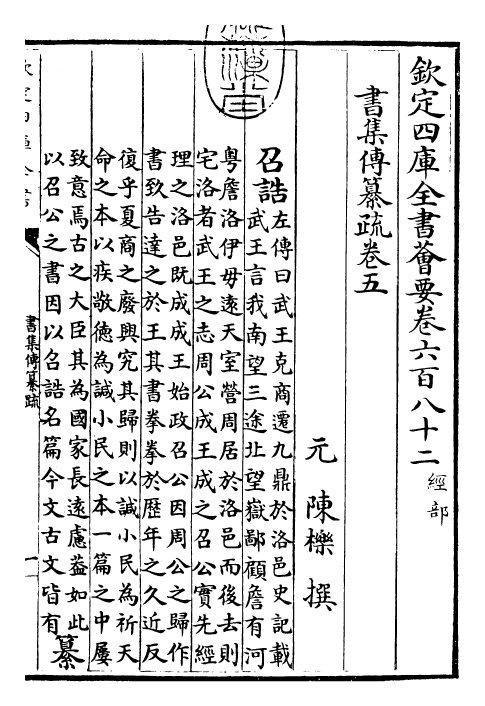 欽定四庫全書薈要卷六百八十二 經部
書集傳纂疏卷五
元 陳櫟 撰
召誥
左傳曰武王克商遷九鼎於洛邑史記載
武王言我南望三途北望嶽鄙顧詹有河
粵詹洛伊毋遠天室營周居於洛邑而後去則
宅洛者武王之志周公成王成之召公實先經
理之洛邑既成成王始政召公因周公之歸作
書致告達之於王其書拳拳於歷年之久近反
復乎夏商之廢興究其歸則以諴小民為祈天
命之本以疾敬德為諴小民之本一篇之中屢
致意焉古之大臣其為國家長遠慮蓋如此
以召公之書因以召誥名篇今文古文皆有
纂
書集傳纂疏
一